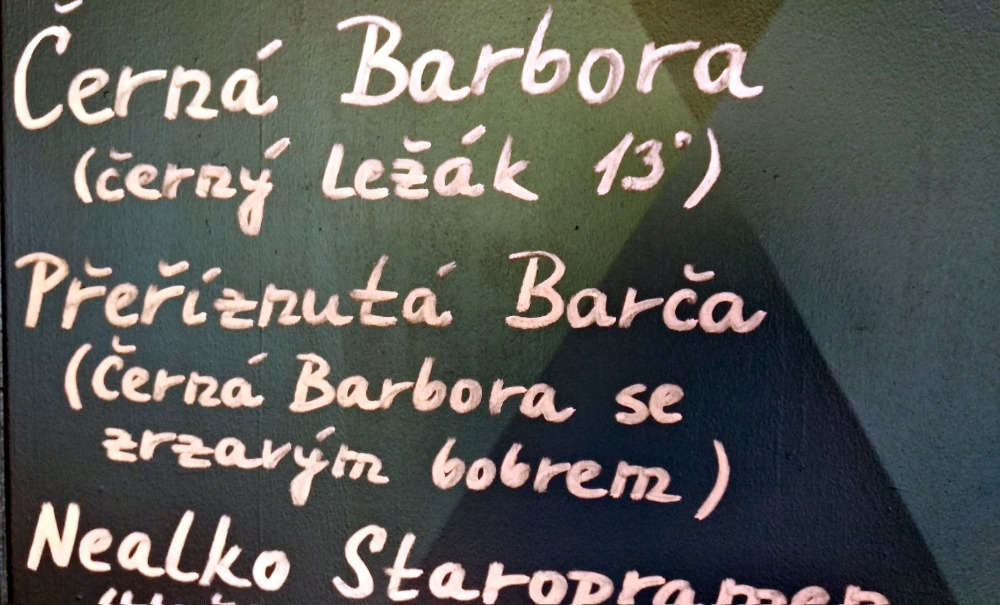 Černá Barbora
(černý Ležák 13°)
Přeříznutá Barča
(Černá Barbora se
zrzavým bobrem)
Nealko Staropramen